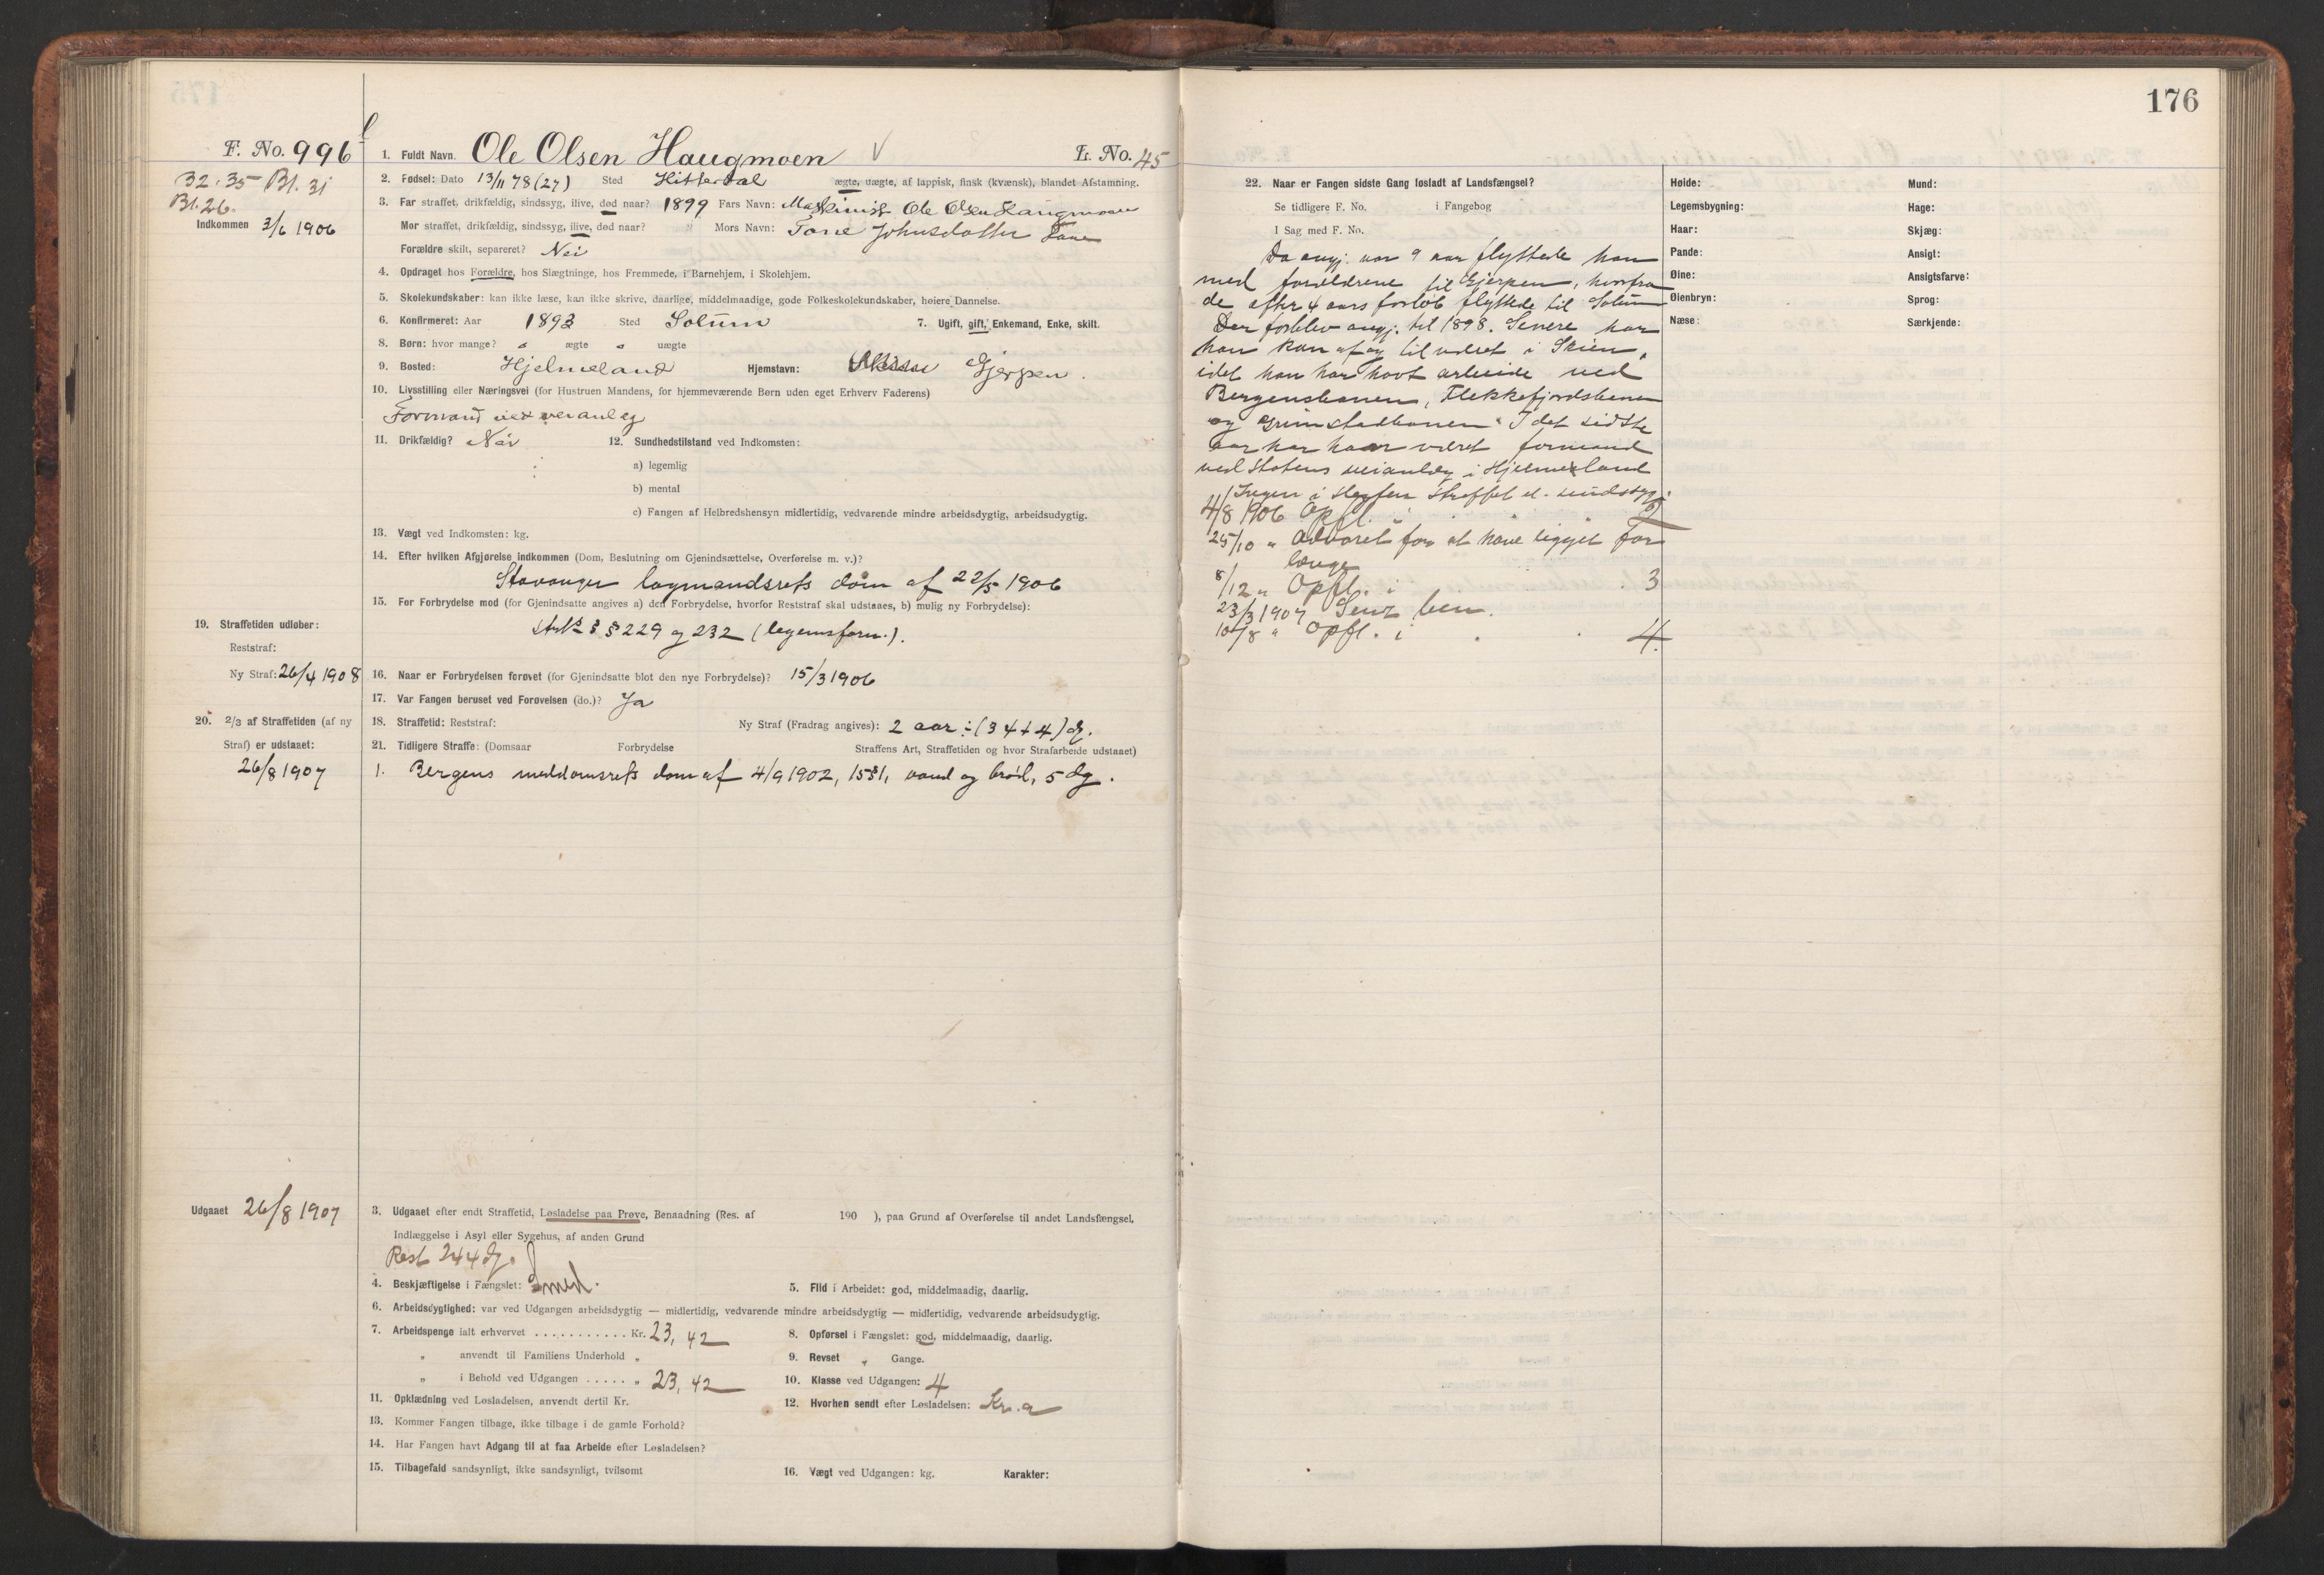 176
F. No. 996
1. Fuldt Navn. Ole Olsen Haugmoen V L. No. 45
32. 35 Bl. 31
Bl. 26.
Indkommen 3/6 1906
2. Fødsel: Dato 13/11 78 (27) Sted Hitterdal ægte, uægte, af lappisk, finsk (kvænsk), blandet Afstamning.
3. Far straffet, drikfældig, sindssyg, ilive, død naar? 1899 Fars Navn: Maskinist Ole Olsen Haugmoen
Mor straffet, drikfældig, sindssyg, ilive, død naar? " Mors Navn: Tone Johnsdatter
Forældre skilt, separeret? Nei
4. Opdraget hos Forældre, hos Slægtninge, hos Fremmede, i Barnehjem, i Skolehjem.
5. Skolekundskaber: kan ikke læse, kan ikke skrive, daarlige, middelmaadige, gode Folkeskolekundskaber, høiere Dannelse.
6. Konfirmeret: Aar 1893 Sted Solum 7. Ugift, gift, Enkemand, Enke, skilt.
8. Børn: hvor mange? " ægte " uægte
9. Bosted: Hjelmeland Hjemstavn: Gjerpen.
10. Livsstilling eller Næringsvei (for Hustruen Mandens, for hjemmeværende Børn uden eget Erhverv Faderens)
Formand ved veianlæg
11. Drikfældig? Nei 12. Sundhedstilstand ved Indkomsten:
a) legemlig
b) mental
c) Fangen af Helbredshensyn midlertidig, vedvarende mindre arbeidsdygtig, arbeidsudygtig.
13. Vægt ved Indkomsten: kg.
14. Efter hvilken Afgjørelse indkommen (Dom, Beslutning om Gjenindsættelse, Overførelse m. v.)?
Stavanger lagmandsrets dom af 22/5 1906
15. For Forbrydelse mod (for Gjenindsatte angives a) den Forbrydelse, hvorfor Reststraf skal udstaaes, b) mulig ny Forbrydelse):
§ § 229 og 232 (legemsforn.).
19. Straffetiden udløber:
Reststraf:
Ny Straf: 26/4 1908
16. Naar er Forbrydelsen forøvet (for Gjenindsatte blot den nye Forbrydelse)? 15/3 1906
17. Var Fangen beruset ved Forøvelsen (do.)? Ja
20. 2/3 af Straffetiden (af ny
Straf) er udstaaet:
26/8 1907
18. Straffetid: Reststraf: Ny Straf (Fradrag angives): 2 aar ÷ (34 + 4) dg.
21. Tidligere Straffe: (Domsaar Forbrydelse Straffens Art, Straffetiden og hvor Strafarbeide udstaaet)
1. Bergens meddomsrets dom af 4/9 1902, 15 § 1, vand og brød, 5 dg.
Udgaaet 26/8 1907
3. Udgaaet efter endt Straffetid, Løsladelse paa Prøve, Benaadning (Res. af 190 ), paa Grund af Overførelse til andet Landsfængsel.
Indlæggelse i Asyl eller Sygehus, af anden Grund
Rest 244 dg.
4. Beskjæftigelse i Fængslet: Smed. 5. Flid i Arbeidet: god, middelmaadig, daarlig.
6. Arbeidsdygtighed: var ved Udgangen arbeidsdygtig — midlertidig, vedvarende mindre arbeidsdygtig — midlertidig, vedvarende arbeidsudygtig.
7. Arbeidspenge ialt erhvervet ........... Kr. 23,42 8. Opførsel i Fængslet: god, middelmaadig, daarlig.
" anvendt til Familiens Underhold " 9. Revset " Gange.
" i Behold ved Udgangen ..... " 23,42 10. Klasse ved Udgangen: 4
11. Opklædning ved Løsladelsen, anvendt dertil Kr. 12. Hvorhen sendt efter Løsladelsen: Kr.a
13. Kommer Fangen tilbage, ikke tilbage i de gamle Forhold?
14. Har Fangen havt Adgang til at faa Arbeide efter Løsladelsen?
15. Tilbagefald sandsynligt, ikke sandsynligt, tvilsomt 16. Vægt ved Udgangen: kg. Karakter:
22. Naar er Fangen sidste Gang løsladt af Landsfængsel?
Se tidligere F. No. i Fangebog
I Sag med F. No.
Da angj. var 9 aar flyttede han
med forældrene til Gjerpen, hvorfra
de efter 4 aars forløb flyttede til Solum
Der forblev angj. til 1898. Senere har
han kun af og til været i Skien,
idet han har havt arbeide ved
Bergensbanen, Flekkefjordsbanen
og Grimstadbanen. I det sidste
aar har han været formand
ved Statens veianlæg i Hjelmeland
Ingen i slegten straffet el. sindssyg.
4/8 1906 Opfl. i 2
25/10 " Advaret for at have ligget for
længe
8/12 " Opfl. i 3
23/3 1907 ben.
10/8 " Opfl. i 4.
Høide: Mund:
Legemsbygning: Hage:
Haar: Skjæg:
Pande: Ansigt:
Øine: Ansigtsfarve:
Øienbryn: Sprog:
Næse: Særkjende: